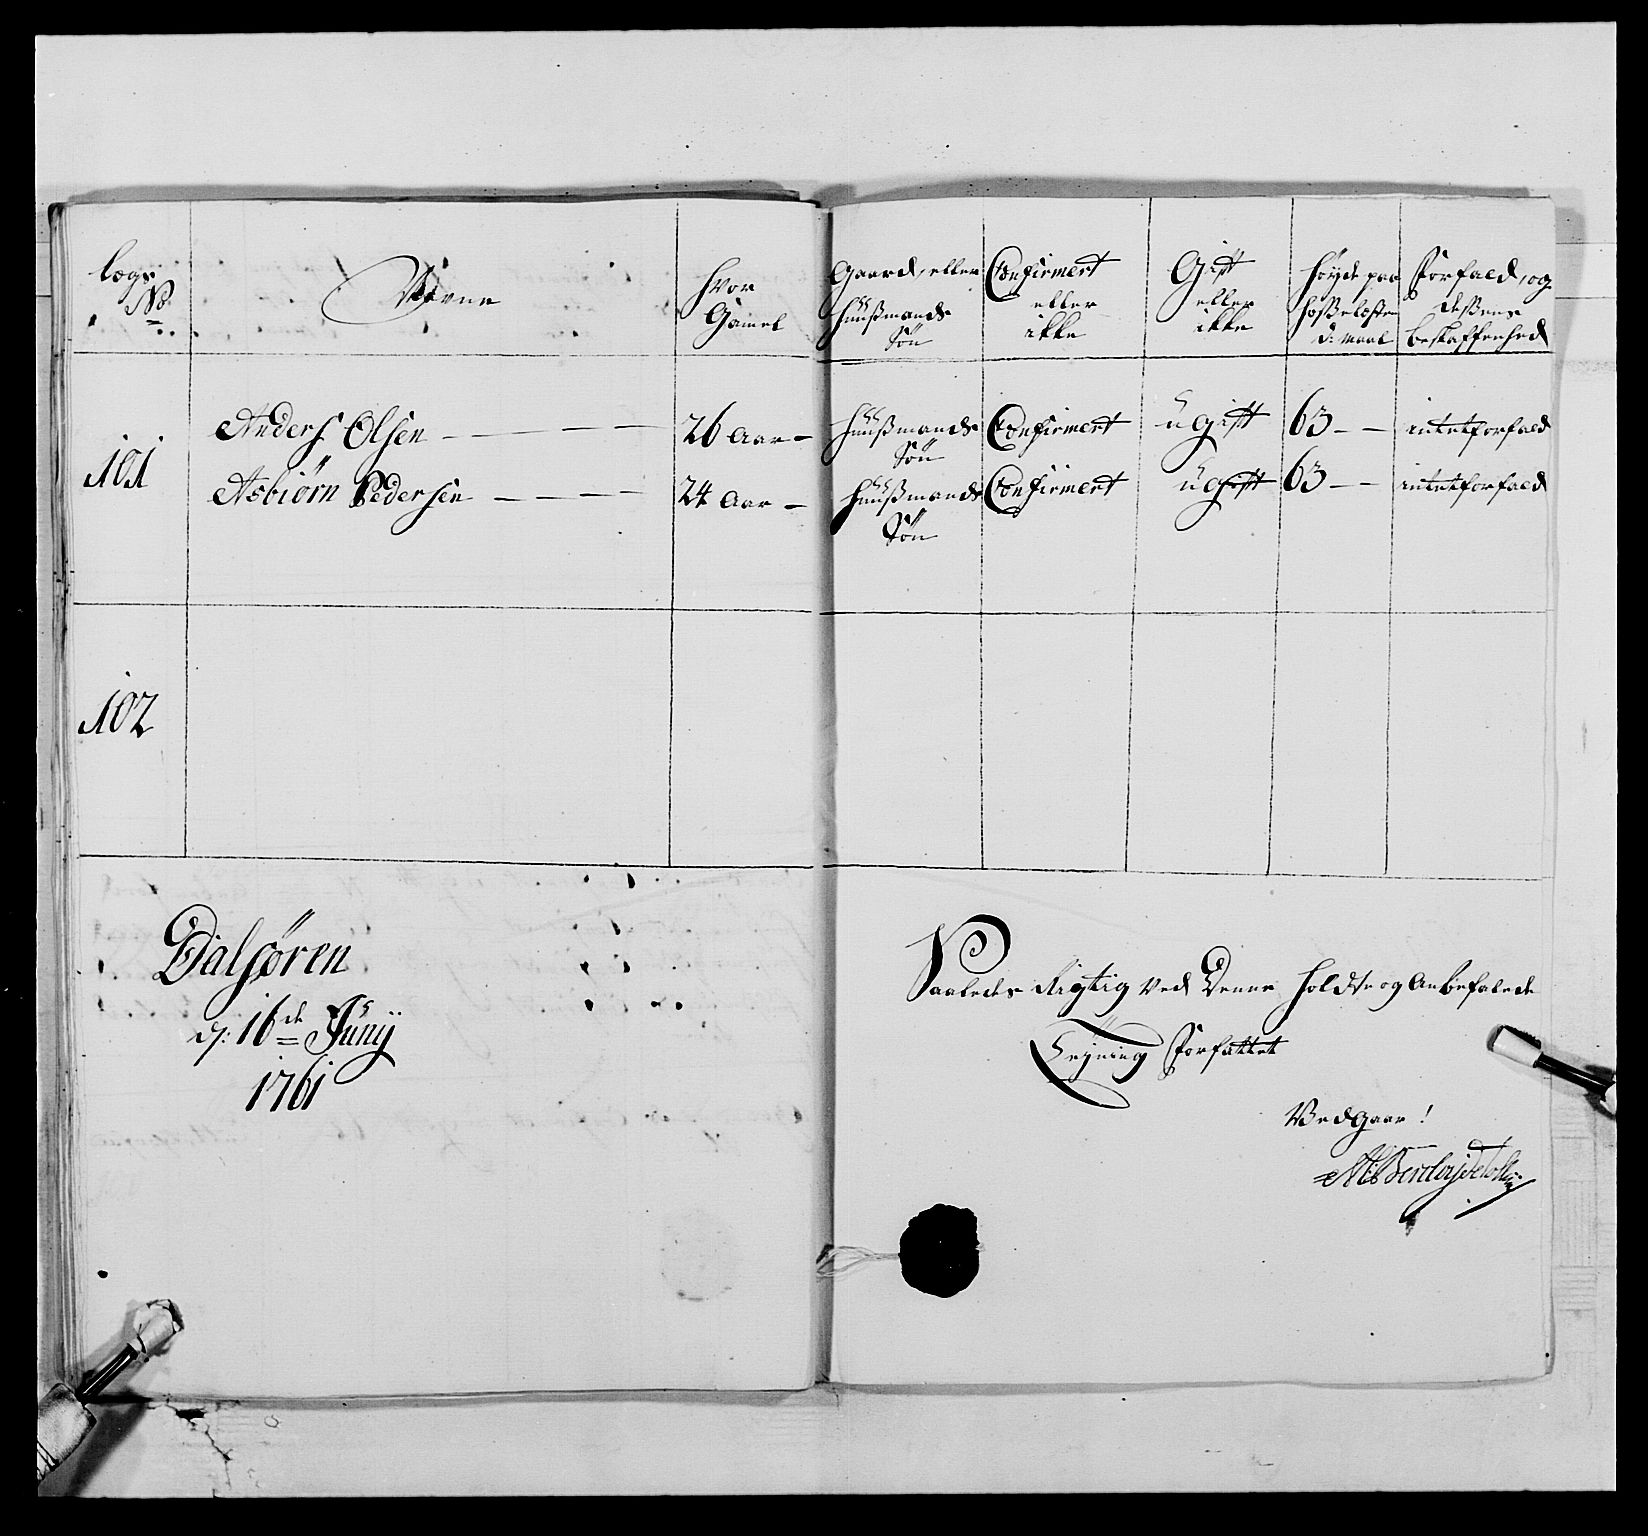 Lægs
No
Navne
Hvor
Gamel
Gaard, eller
Huusmands
Søn
Confirmert
eller
ikke
Gift
eller
ikke
Høyde paa
d: maal
Forfald, og
desßens
beskaffenhed
101
Anders Olsen — — — — 26 Aar — Huußmands Confirmert ugift 63 — — intet forfald
Søn
Asbiørn Pedersen — — — — 24 Aar — Huußmands Confirmert ugift 63 — — intet forfald
Søn
102
Dalsøren
d: 16de Junij
1761
Saaledes Rigtig ved Denne holdte og Anbefalede
Sejning Forfattet
Vedgaar!